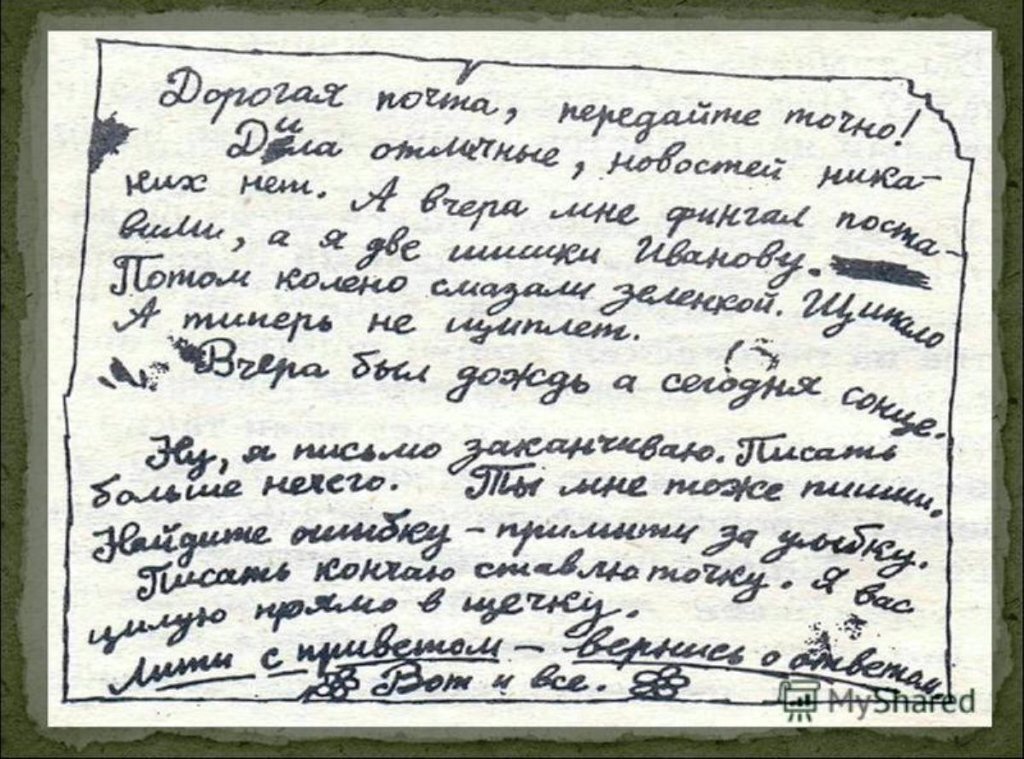 Дорогая почта, передайте точно!
Дила отличные, новостей ника-
ких нет. А вчера мне фингал поста-
вили, а я две шишки Иванову.
Потом колено смазали зеленкой. Щипало
А типерь не щиплет.
Вчера был дождь а сегодня сонце.
Ну, я письмо заканчиваю. Писать
больше нечего. Ты мне тоже пиши.
Найдите ошибку – примити за улыбку.
Писать кончаю ставлю точку. Я вас
цилую прямо в щечку.
Лити с приветом – вернись о ответам.
Вот и все.
MyShared